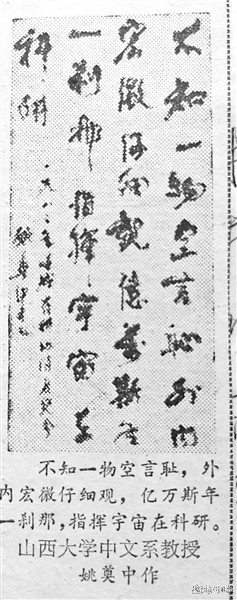 不知一物空言耻外内
宏微仔细观亿万斯年
一刹那指挥宇宙在
科研
一九八二年
姚奠中
不知一物空言耻，外
内宏微仔细观，亿万斯年
一刹那，指挥宇宙在科研。
山西大学中文系教授
姚奠中作